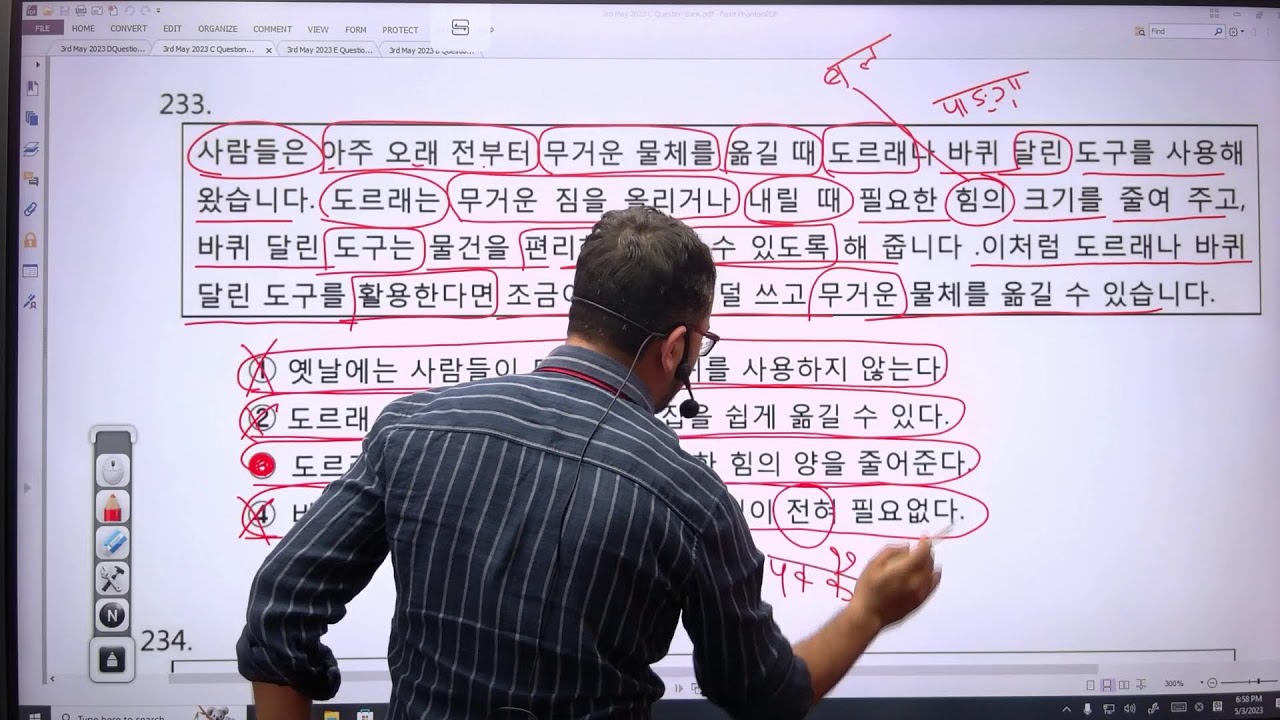 3rd May 2023 C Question Bank.pdf - Foxit PhantomPDF
FILE HOME CONVERT EDIT ORGANIZE COMMENT VIEW FORM PROTECT
Find
3rd May 2023 DQuestio... 3rd May 2023 C Question... 3rd May 2023 E Questio... 3rd May 2023
233.
사람들은 아주 오래 전부터 무거운 물체를 옮길 때 도르래나 바퀴 달린 도구를 사용해
왔습니다. 도르래는 무거운 짐을 올리거나 내릴 때 필요한 힘의 크기를 줄여 주고,
바퀴 달린 도구는 물건을 수 있도록 해 줍니다 .이처럼 도르래나 바퀴
달린 도구를 활용한다면 덜 쓰고 무거운 물체를 옮길 수 있습니다.
① 옛날에는 사람들이 사용하지 않는다
② 도르래 쉽게 옮길 수 있다.
힘의 양을 줄어준다.
④ 전혀 필요없다.
बल
234.
N
300%
Type here to search
6:58 PM
5/3/2023